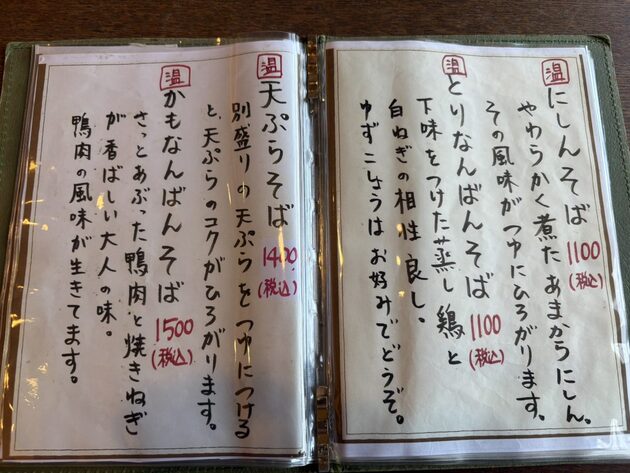 温
にしんそば 1100
(税込)
やわらかく煮た あまからにしん。
その風味が つゆにひろがります。
温
とりなんばんそば 1100
(税込)
下味をつけた蒸し鶏と
白ねぎの相性良し。
ゆずこしょうは お好みでどうぞ。
温
天ぷらそば 1400
(税込)
別盛りの天ぷらを つゆにつける
と、天ぷらのコクがひろがります。
温
かもなんばんそば 1500
(税込)
さっとあぶった鴨肉と焼きねぎ
が香ばしい大人の味。
鴨肉の風味が生きてます。